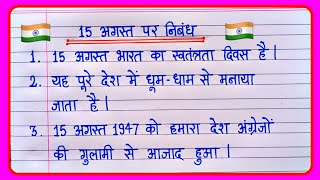 15 अगस्त पर निबंध
1. 15 अगस्त भारत का स्वतंत्रता दिवस है |
2. यह पूरे देश में धूम-धाम से मनाया
जाता है |
3. 15 अगस्त 1947 को हमारा देश अंग्रेजों
की गुलामी से आजाद हुआ |